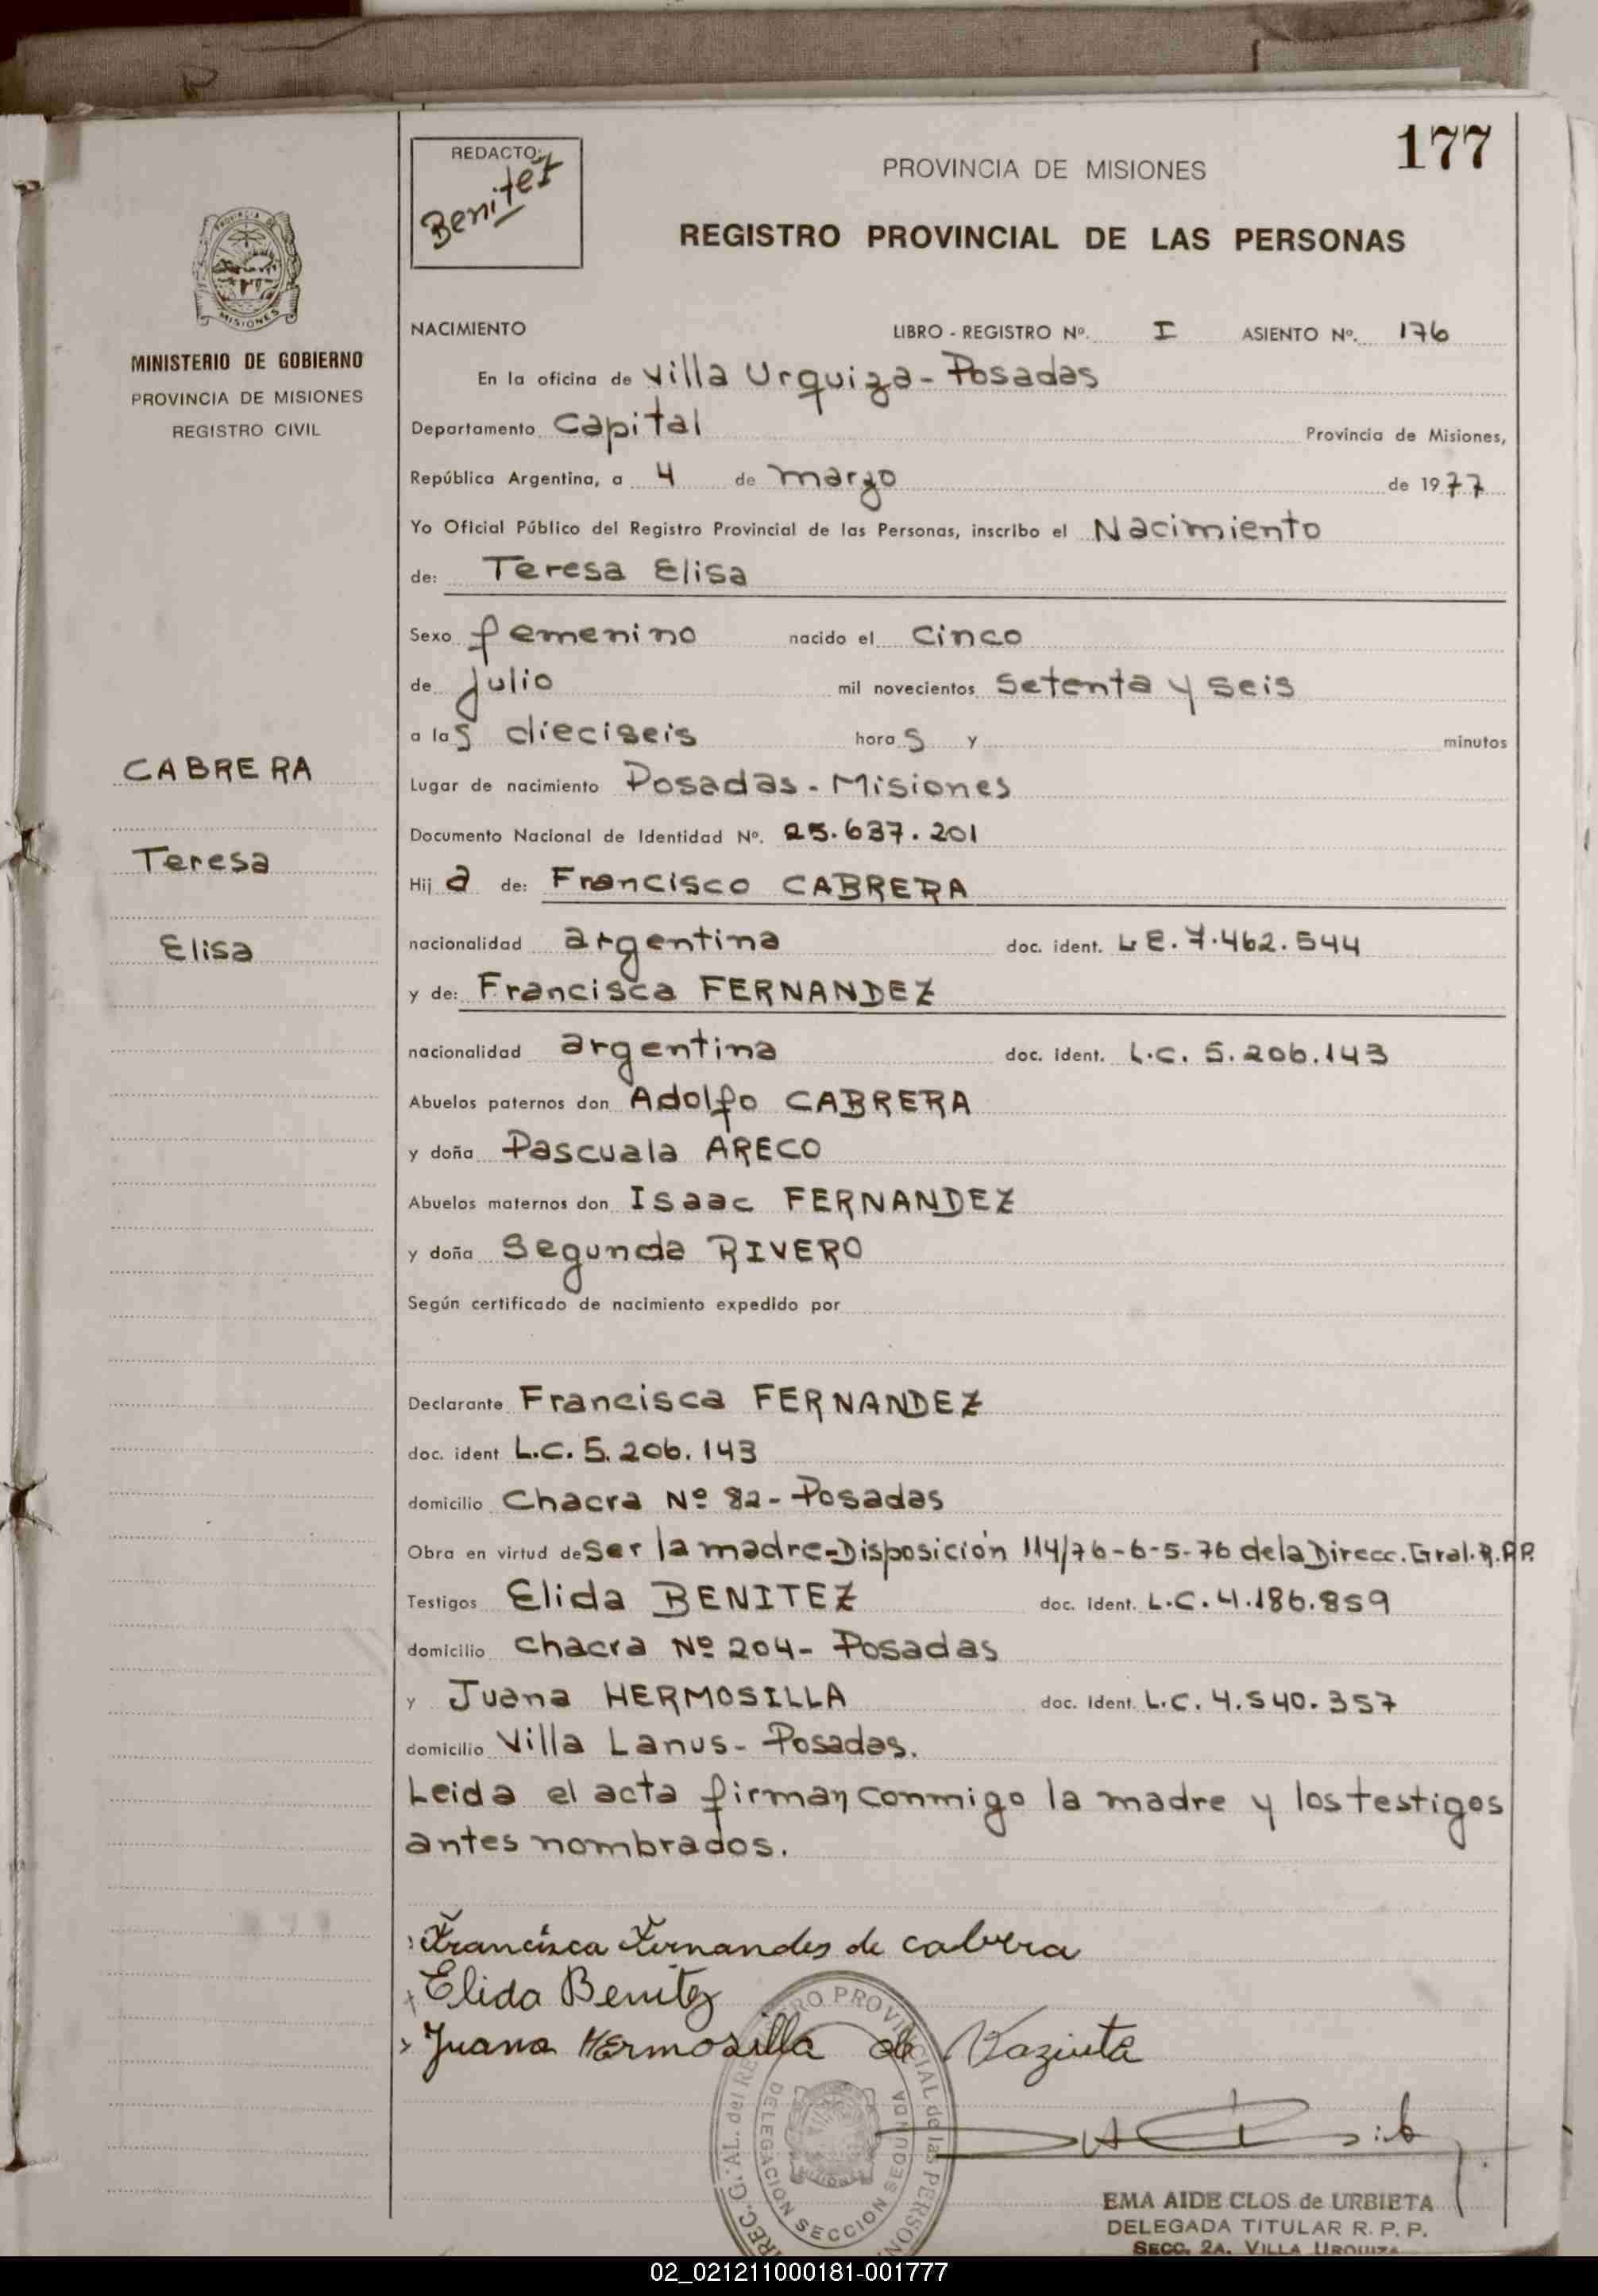 177
REDACTO:
Benitez
PROVINCIA DE MISIONES
REGISTRO PROVINCIAL DE LAS PERSONAS
MISIONES
MINISTERIO DE GOBIERNO
PROVINCIA DE MISIONES
REGISTRO CIVIL
CABRERA
Teresa
Elisa
NACIMIENTO LIBRO - REGISTRO Nº. I ASIENTO Nº. 176
En la oficina de Villa Urquiza - Posadas
Departamento Capital Provincia de Misiones,
República Argentina, a 4 de marzo de 1977
Yo Oficial Público del Registro Provincial de las Personas, inscribo el Nacimiento
de: Teresa Elisa
Sexo femenino nacido el cinco
de julio mil novecientos setenta y seis
a las dieciseis horas y minutos
Lugar de nacimiento Posadas - Misiones
Documento Nacional de Identidad Nº. 25.637.201
Hija de: Francisco CABRERA
nacionalidad argentina doc. ident. L.E. 7.462.544
y de: Francisca FERNANDEZ
nacionalidad argentina doc. ident. L.C. 5.206.143
Abuelos paternos don Adolfo CABRERA
y doña Pascuala ARECO
Abuelos maternos don Isaac FERNANDEZ
y doña Segunda RIVERO
Según certificado de nacimiento expedido por
Declarante Francisca FERNANDEZ
doc. ident L.C. 5.206.143
domicilio Chacra Nº 82 - Posadas
Obra en virtud de ser la madre - Disposición 114/76-6-5-76 de la Direcc. Gral. R.P.P.
Testigos Elida BENITEZ doc. ident. L.C. 4.186.859
domicilio chacra Nº 204 - Posadas
y Juana HERMOSILLA doc. ident. L.C. 4.540.357
domicilio Villa Lanus - Posadas.
Leida el acta firman conmigo la madre y los testigos
antes nombrados.
Francisca Fernandes de cabrera
Elida Benitez
Juana Hermosilla de
DIREC. G.'AL. del REGISTRO PROVINCIAL de las PERSONAS
DELEGACION SECCION SEGUNDA
EMA AIDE CLOS de URBIETA
DELEGADA TITULAR R. P. P.
SECC. 2A. VILLA URQUIZA
02_021211000181-001777